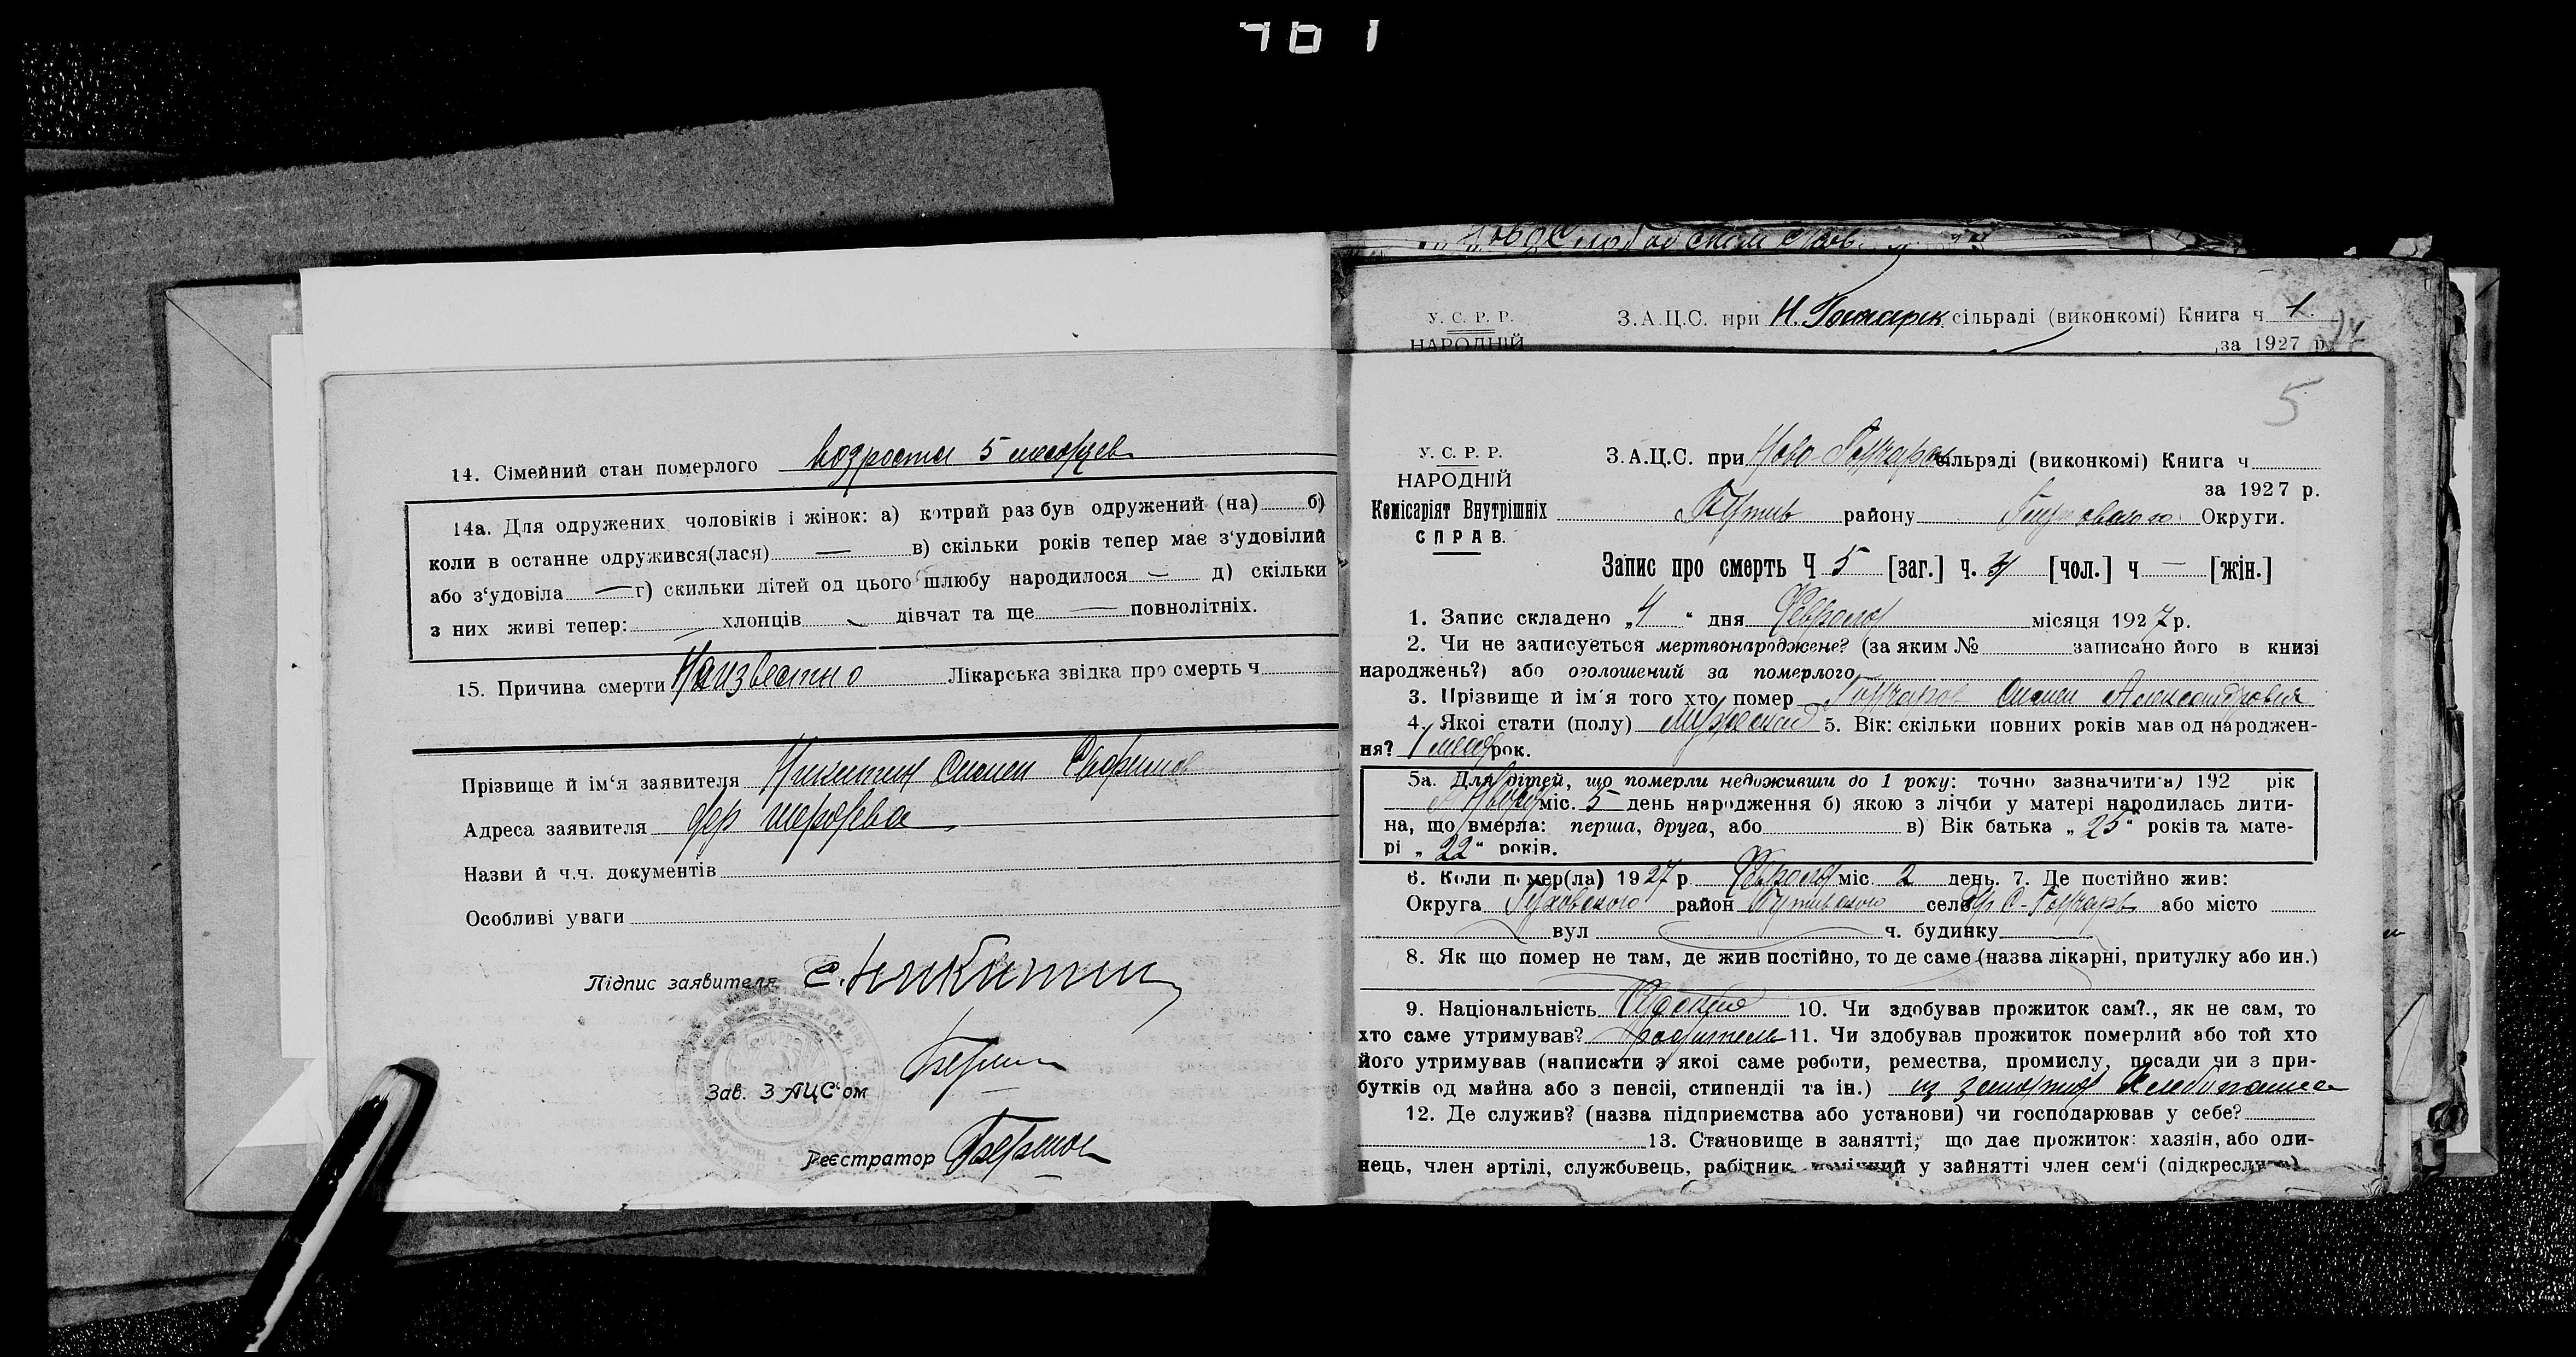 14. Сімейний стан померлого возроста 5 месяцев
14а. Для одружених чоловіків і жінок: а) котрий раз був одружений (на) б)
коли в останне одружився(лася) — в) скільки років тепер має з‘удовілий
або з‘удовіла — г) скильки дітей од цього шлюбу народилося — д) скільки
з них живі тепер: — хлопців дівчат та ще — повнолітніх.
15. Причина смерти Неизвестно Лікарська звідка про смерть ч
Прізвище й ім‘я заявителя Никитин Симен
Адреса заявителя дер
Назви й ч.ч. документів
Особливі уваги
Підпис заявителя С. Никитин
Зав. ЗАЦС‘ом
Реєстратор
У. С. Р. Р. З.А.Ц.С. при Н. Гончарск сільраді (виконкомі) Книга ч 1.
НАРОДНІЙ за 1927 р.
5
У. С. Р. Р. З.А.Ц.С. при Ново-Гончаров сільраді (виконкомі) Книга ч
НАРОДНІЙ за 1927 р.
Комісаріят Внутрішніх Путив району Глуховского Округи.
СПРАВ.
Запис про смерть Ч 5 [заг.] ч. 4 [чол.] ч — [жін.]
1. Запис складено „4“ дня Февраля місяця 1927 р.
2. Чи не записується мертвонароджене? (за яким № записано його в книзі
народжень?) або оголошений за померлого
3. Прізвище й ім‘я того хто помер Гончаров Симен Александрович
4. Якоі стати (полу) мужской 5. Вік: скільки повних років мав од народжен-
ня? рок.
5а. Для дітей, що померли недоживши до 1 року: точно зазначити а) 192 рік
міс. 5 день народження б) якою з лічби у матері народилась дити-
на, що вмерла: перша, друга, або в) Вік батька „25“ років та мате-
рі „22“ років.
6. Коли помер(ла) 1927 р Февраля міс. 2 день. 7. Де постійно жив:
Округа Глуховского район Путивского село С-Гончары або місто
вул ч. будинку
8. Як що помер не там, де жив постійно, то де саме (назва лікарні, притулку або ин.)
9. Національність 10. Чи здобував прожиток сам?., як не сам, то
хто саме утримував? родитель 11. Чи здобував прожиток померлий або той хто
його утримував (написати з якоі саме роботи, ремества, промислу, посади чи з при-
бутків од майна або з пенсіі, стипендіі та ін.) из занятия хлебопашца
12. Де служив? (назва підприємства або установи) чи господарював у себе?
13. Становище в занятті; що дає прожиток: хазяін, або оди-
нець, член артілі, службовець, рабітник у зайнятті член сем‘і (підкреслити)